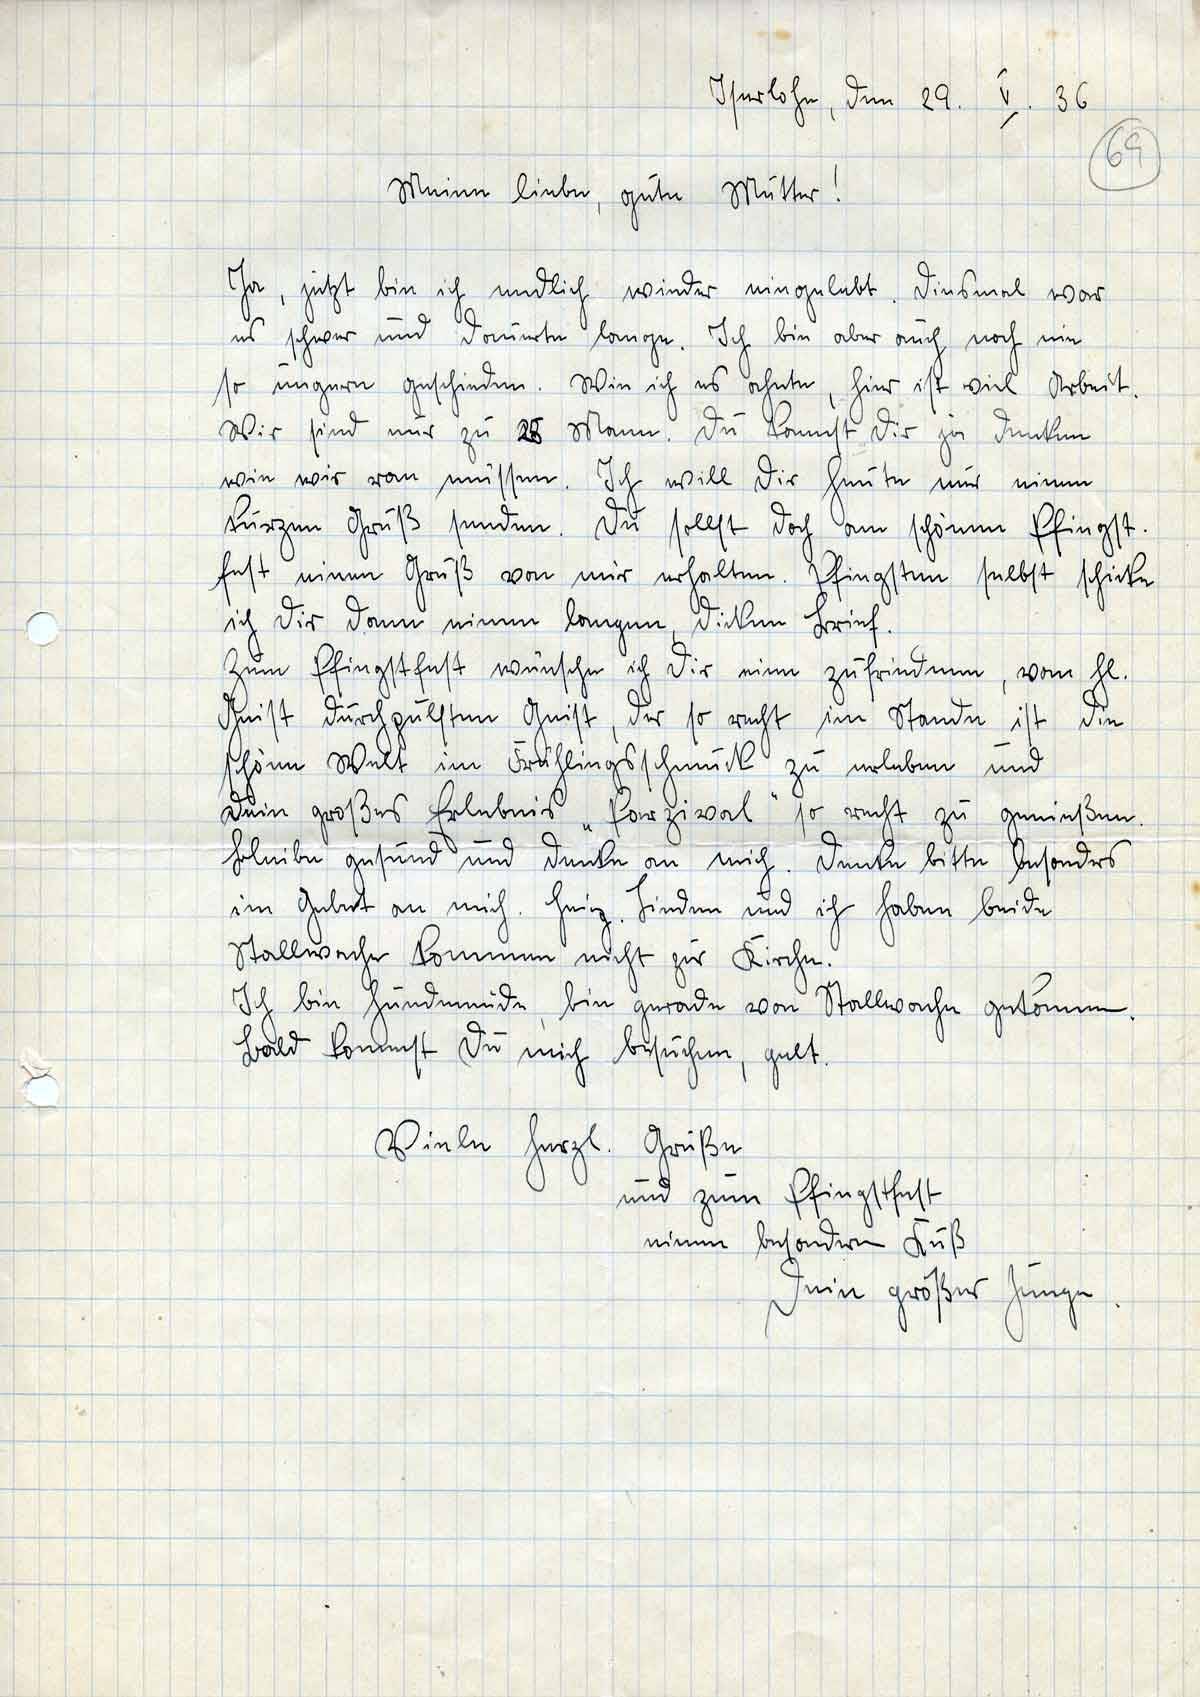 Iserlohn, den 29. V. 36
69
Meine liebe, gute Mutter!
Ja, jetzt bin ich endlich wieder eingelebt. Diesmal war
es schwer und dauerte lange. Ich bin aber auch noch nie
so ungern geschieden. Wie ich es ahnte, hier ist viel Arbeit.
Wir sind nur zu 25 Mann. Du kannst Dir ja denken
wie wir ran müssen. Ich will Dir heute nur einen
kurzen Gruß senden. Du sollst doch am schönen Pfingst-
fest einen Gruß von mir erhalten. Pfingsten selbst schicke
ich Dir dann einen langen, dicken Brief.
Zum Pfingstfest wünsche ich Dir eine zufriedenen, vom hl.
Geist durchpulsten Geist, der so recht im Stande ist die
schöne Welt im Frühlingsschmuck zu erleben und
Dein großes Erlebnis „Parzival" so recht zu genießen.
Bleibe gesund und denke an mich. Denke bitte besonders
im Gebet an mich. Heinz Linden und ich haben beide
Stallwache kommen nicht zur Kirche.
Ich bin hundemüde, bin gerade von Stallwache gekommen.
Bald kommst Du mich besuchen, gelt.
Viele herzl. Grüße
und zum Pfingstfest
einen besonderen Kuß
Dein großer Junge.